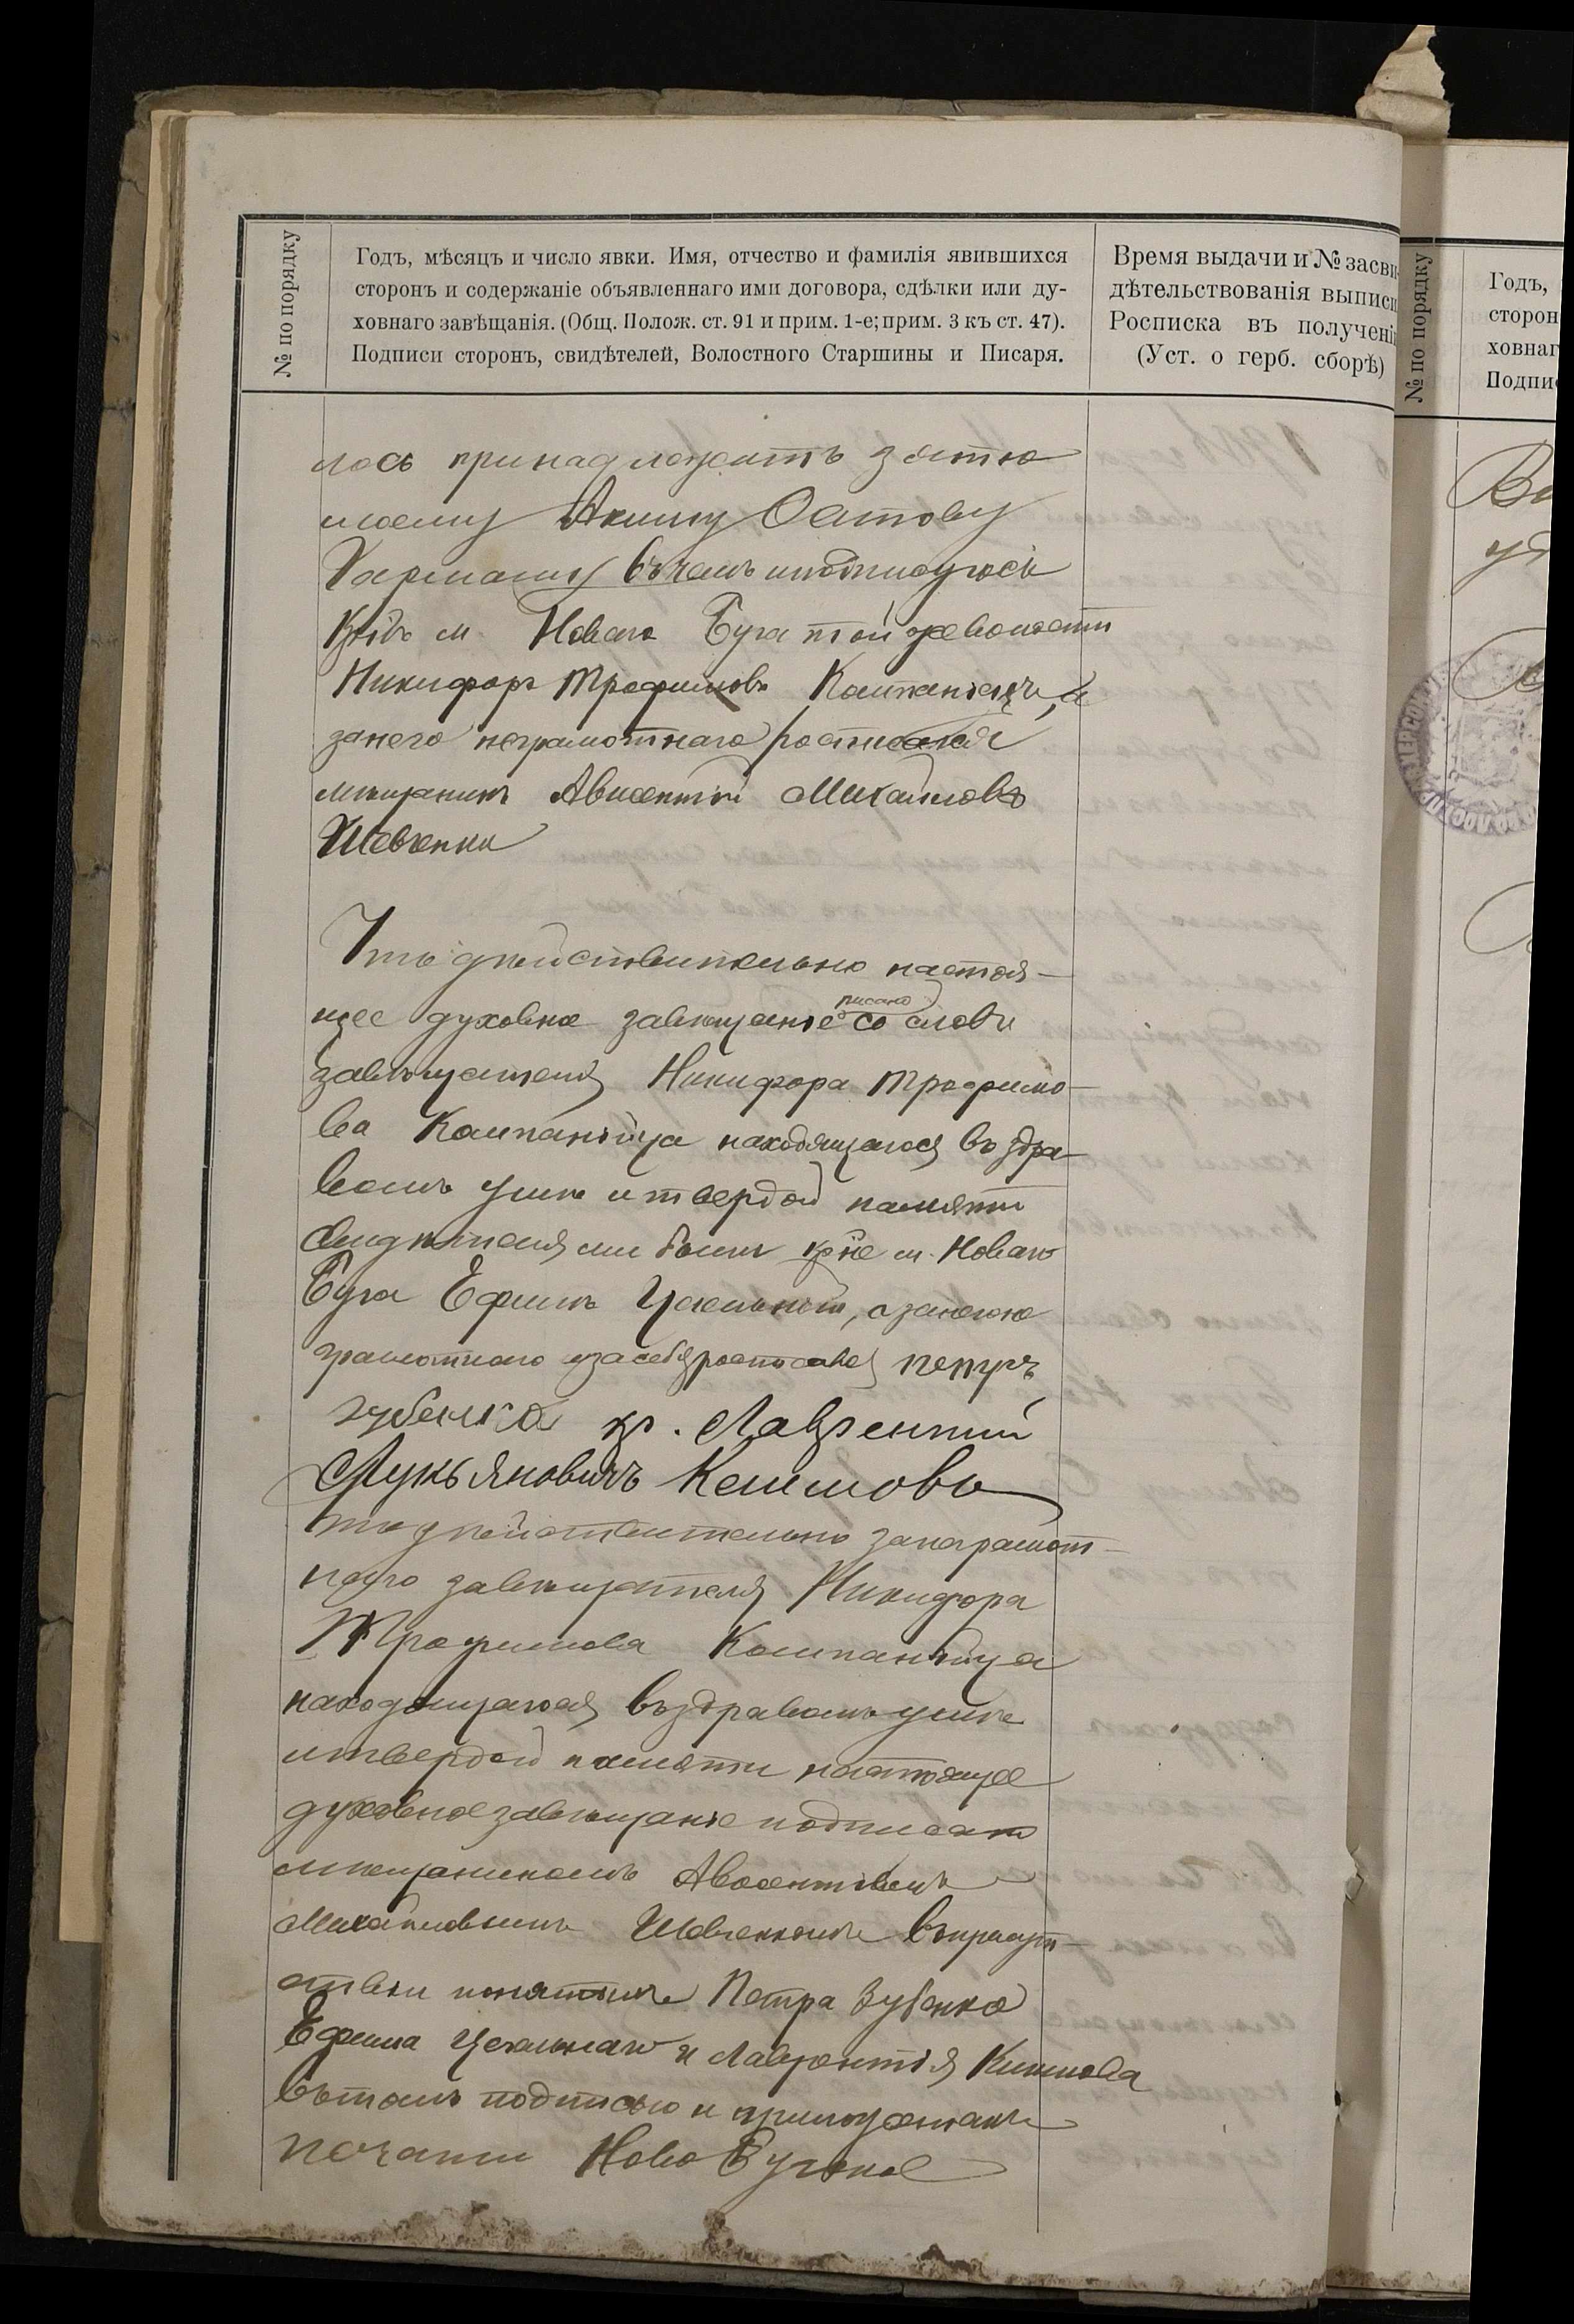 № по порядку
Годъ, мѣсяцъ и число явки. Имя, отчество и фамилія явившихся
сторонъ и содержаніе объявленнаго ими договора, сдѣлки или ду-
ховнаго завѣщанія. (Общ. Полож. ст. 91 и прим. 1-е; прим. 3 къ ст. 47).
Подписи сторонъ, свидѣтелей, Волостного Старшины и Писаря.
Время выдачи и № засви
дѣтельствованія выписи
Росписка въ полученіи
(Уст. о герб. сборѣ)
лось принадлежитъ зятю
моему Акиму
въ чемъ и подписуюсь
м. Новаго Буга той же волости
Никифоръ Трофимовъ Компаніецъ, а
за него неграмотнаго росписался
мѣщанинъ Авксентій Михайловъ
Шевченко
Что дѣйствительно настоя-
щее духовное завѣщаніе писано со словъ
завѣщателя Никифора Трофимо-
ва Компанійца находящагося въ здра-
вомъ умѣ и твердой памяти
свидѣтелями были кр-не м. Новаго
Буга Ефимъ а за него не
грамотнаго и за себя росписался петръ
зубенко кр. Лаврентий
Лукьяновичъ
что дѣйствительно за неграмот-
наго завѣщателя Никифора
Трофимова Компанійца
находящагося въ здравомъ умѣ
и твердой памяти настоящее
духовное завѣщаніе подписано
мѣщаниномъ Авксентіемъ
Михайловымъ Шевченкомъ въ присут-
ствіи понятыхъ Петра Зубенко
Ефима и Лаврентія
въ томъ подписью и приложеніемъ
печати Ново Бугской
№ по порядку
Годъ,
сторон
ховнаг
Подпис